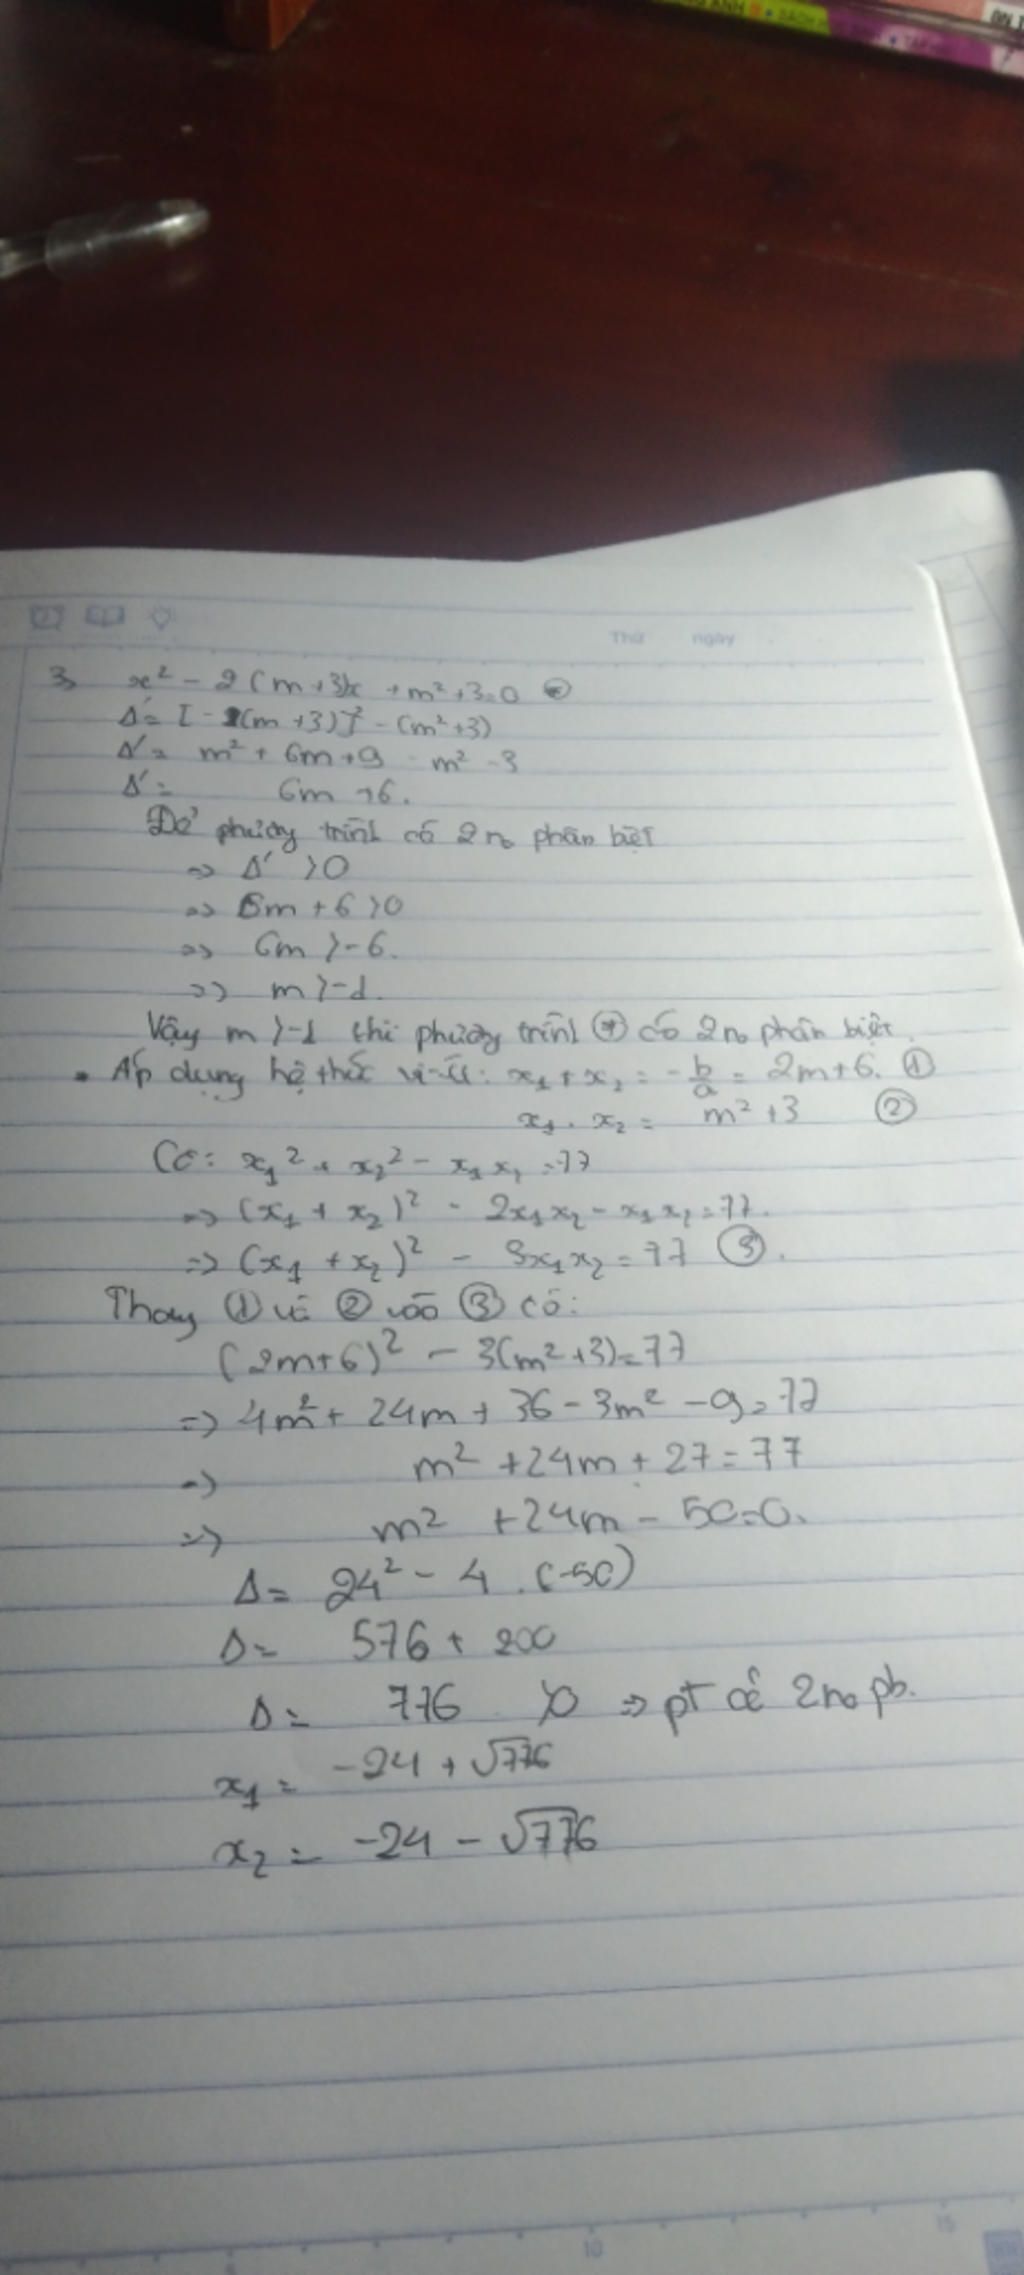 ANH
SÁCH
Thứ ngày
3, x² - 2(m+3)x + m²+3=0 (*)
Δ'= [-(m+3)]² - (m²+3)
Δ'= m² + 6m+9 - m² -3
Δ'= 6m +6.
Để phương trình có 2 n₀ phân biệt
=> Δ' >0
=> 6m + 6 >0
=> 6m >-6.
=> m >-1.
Vậy m >-1 thì phương trình (*) có 2n₀ phân biệt.
• Áp dụng hệ thức vi-ét: x₁ + x₂ = -b/a = 2m+6. ①
x₁ . x₂ = m² +3 ②
Có: x₁² + x₂² - x₁x₂ =77
=> (x₁ + x₂)² - 2x₁x₂ - x₁x₂ =77.
=> (x₁ + x₂)² - 3x₁x₂ = 77 ③.
Thay ① và ② vào ③ có:
(2m+6)² - 3(m²+3)=77
=> 4m² + 24m + 36 - 3m² - 9 = 77
=> m² +24m + 27 = 77
=> m² +24m - 50=0.
Δ= 24² - 4 . (-50)
Δ= 576 + 200
Δ= 776 >0 => pt có 2n₀ pb.
x₁ = -24 + √776
x₂ = -24 - √776
10
15